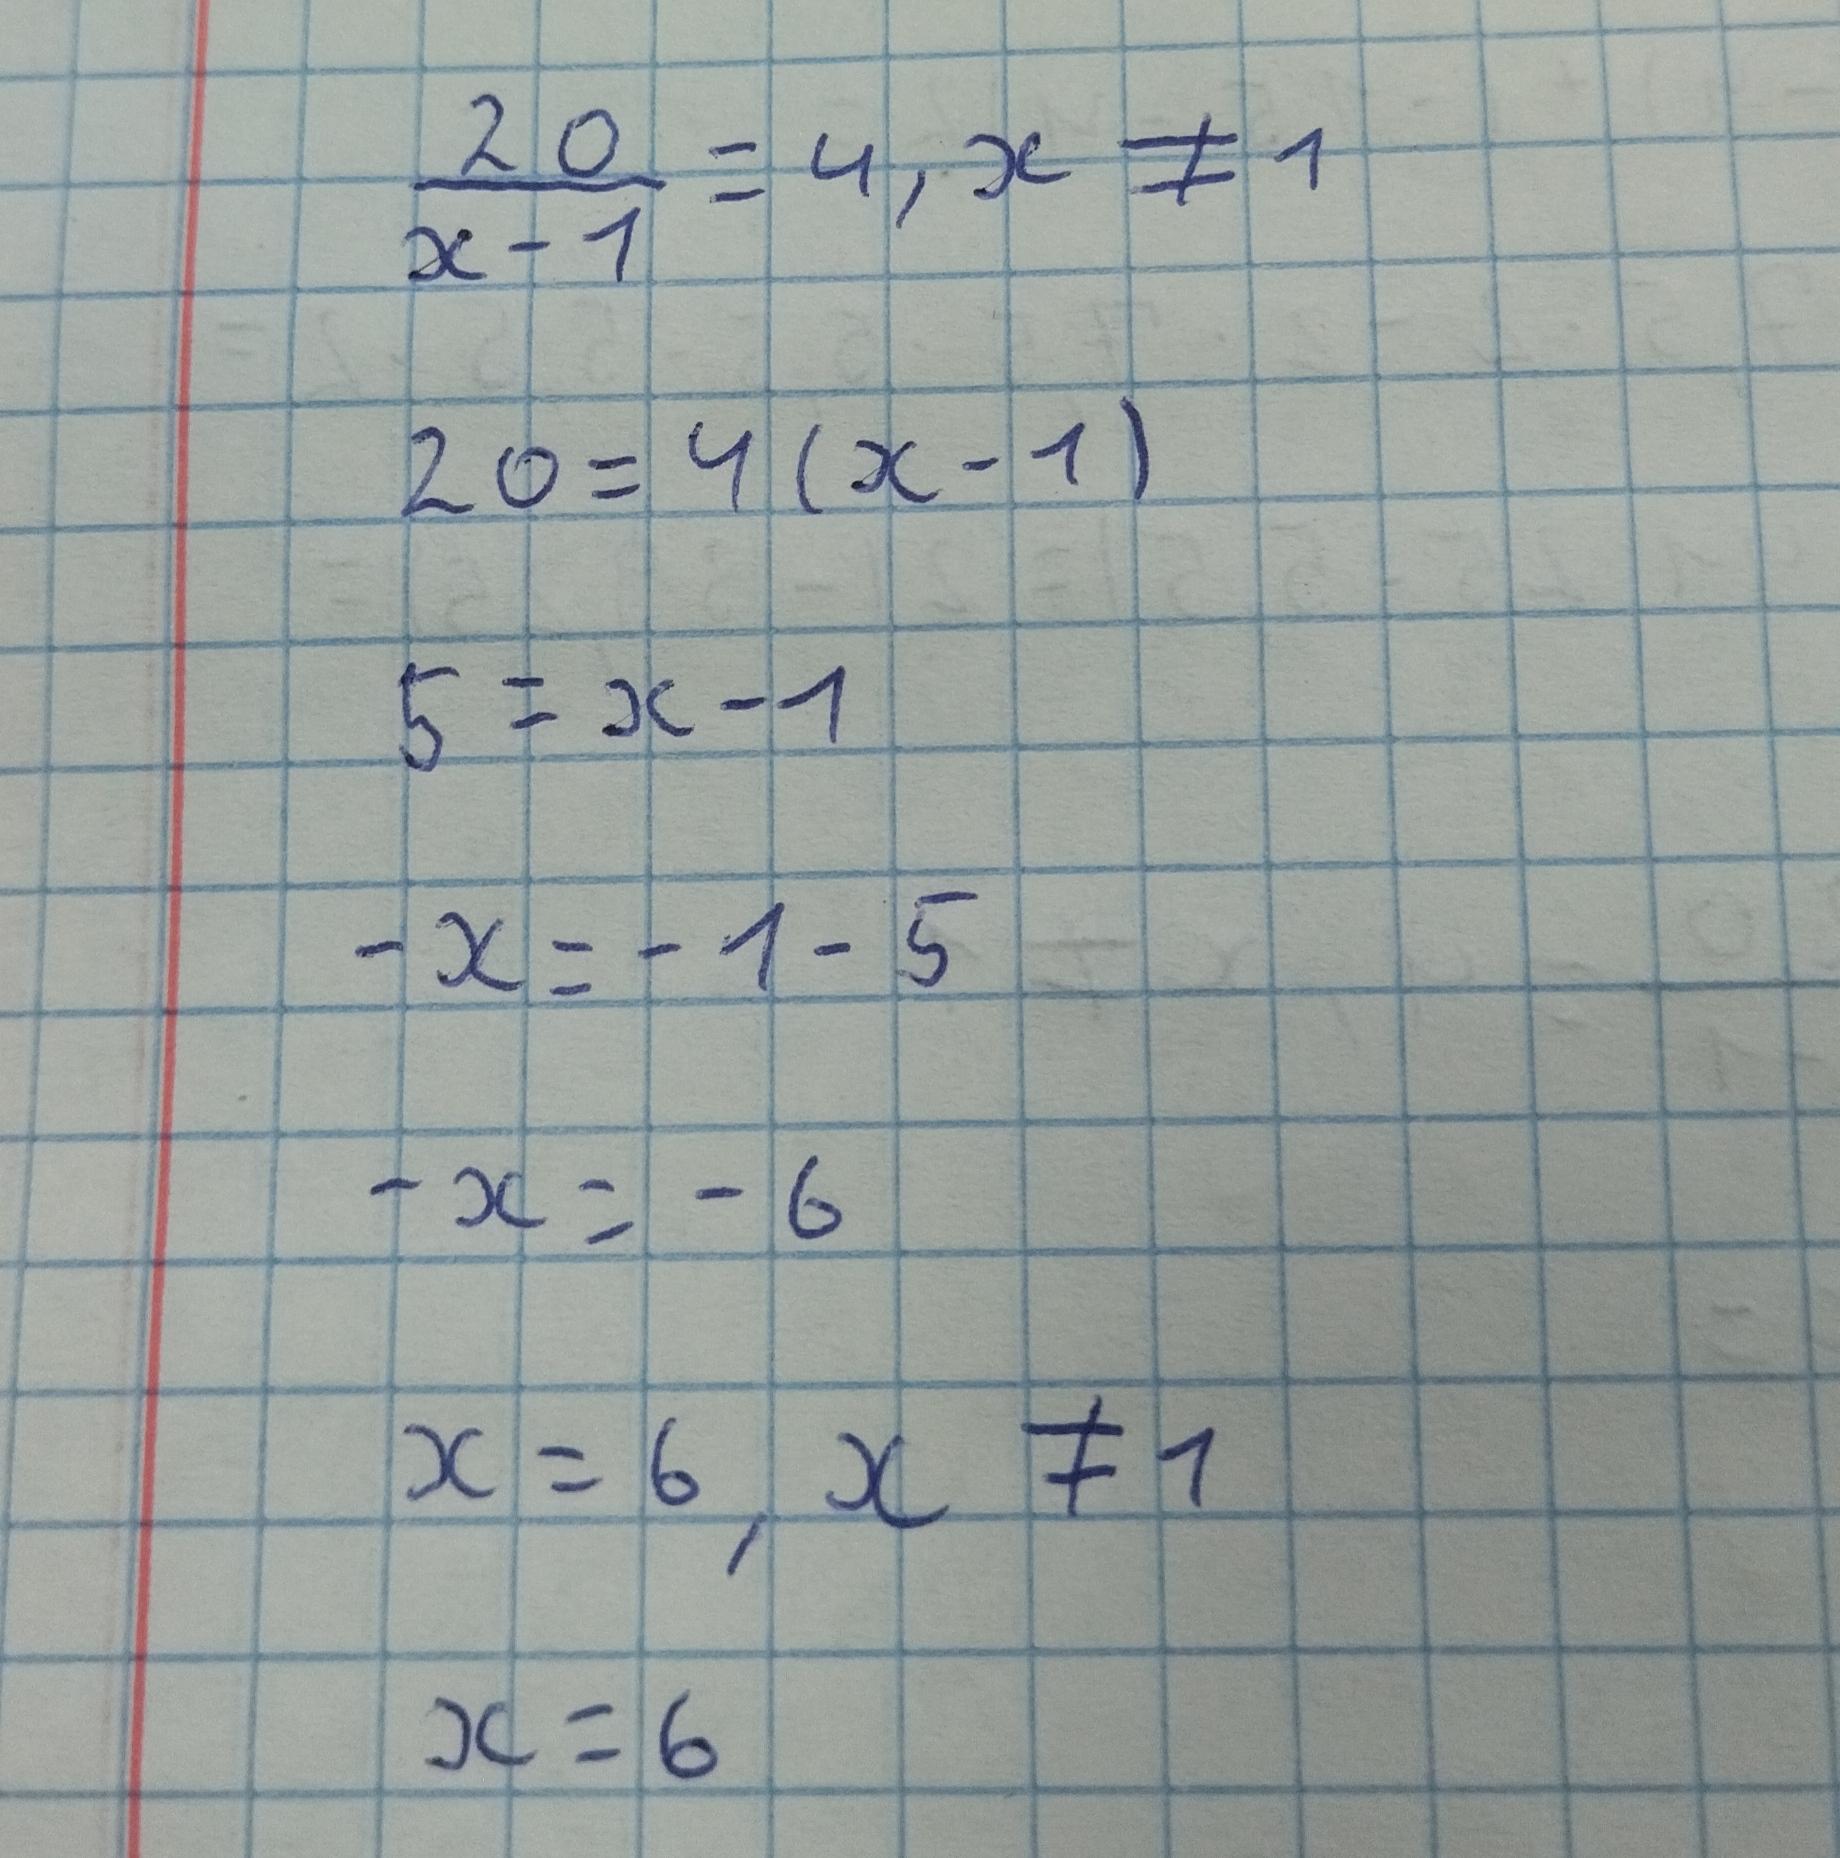 20/(x-1) = 4, x ≠ 1
20 = 4(x-1)
5 = x-1
-x = -1-5
-x = -6
x = 6, x ≠ 1
x = 6